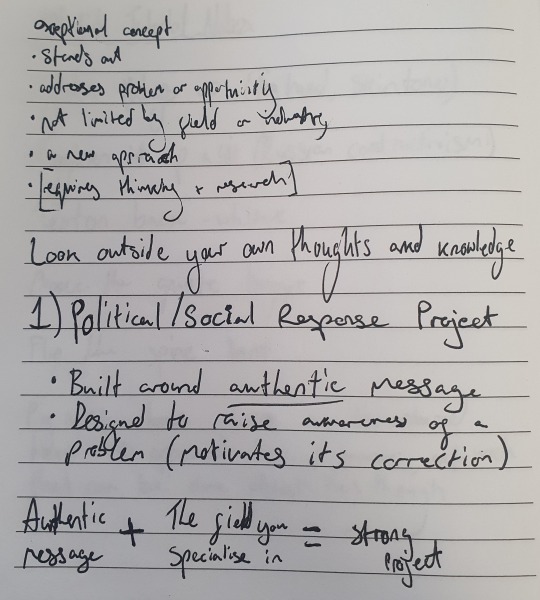 exceptional concept
· Stands out
· addresses problem or opportunity
· not limited by field or industry
· a new approach
· [requires thinking + research]
Look outside your own thoughts and knowledge
1) Political/Social Response Project
· Built around authentic message
· Designed to raise awareness of a
problem (motivates its correction)
Authentic + The field you = strong
message specialise in project